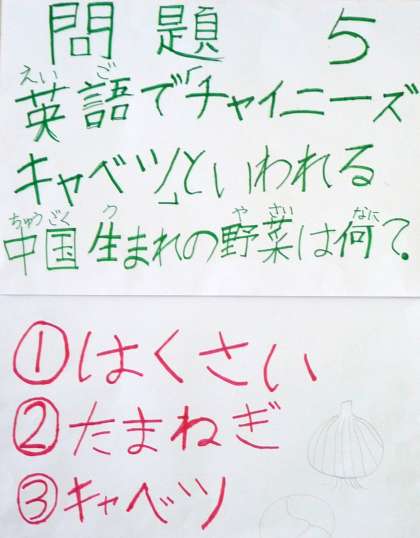 問題 5
英語で「チャイニーズ
キャベツ」といわれる
中国生まれの野菜は何?
①はくさい
②たまねぎ
③キャベツ